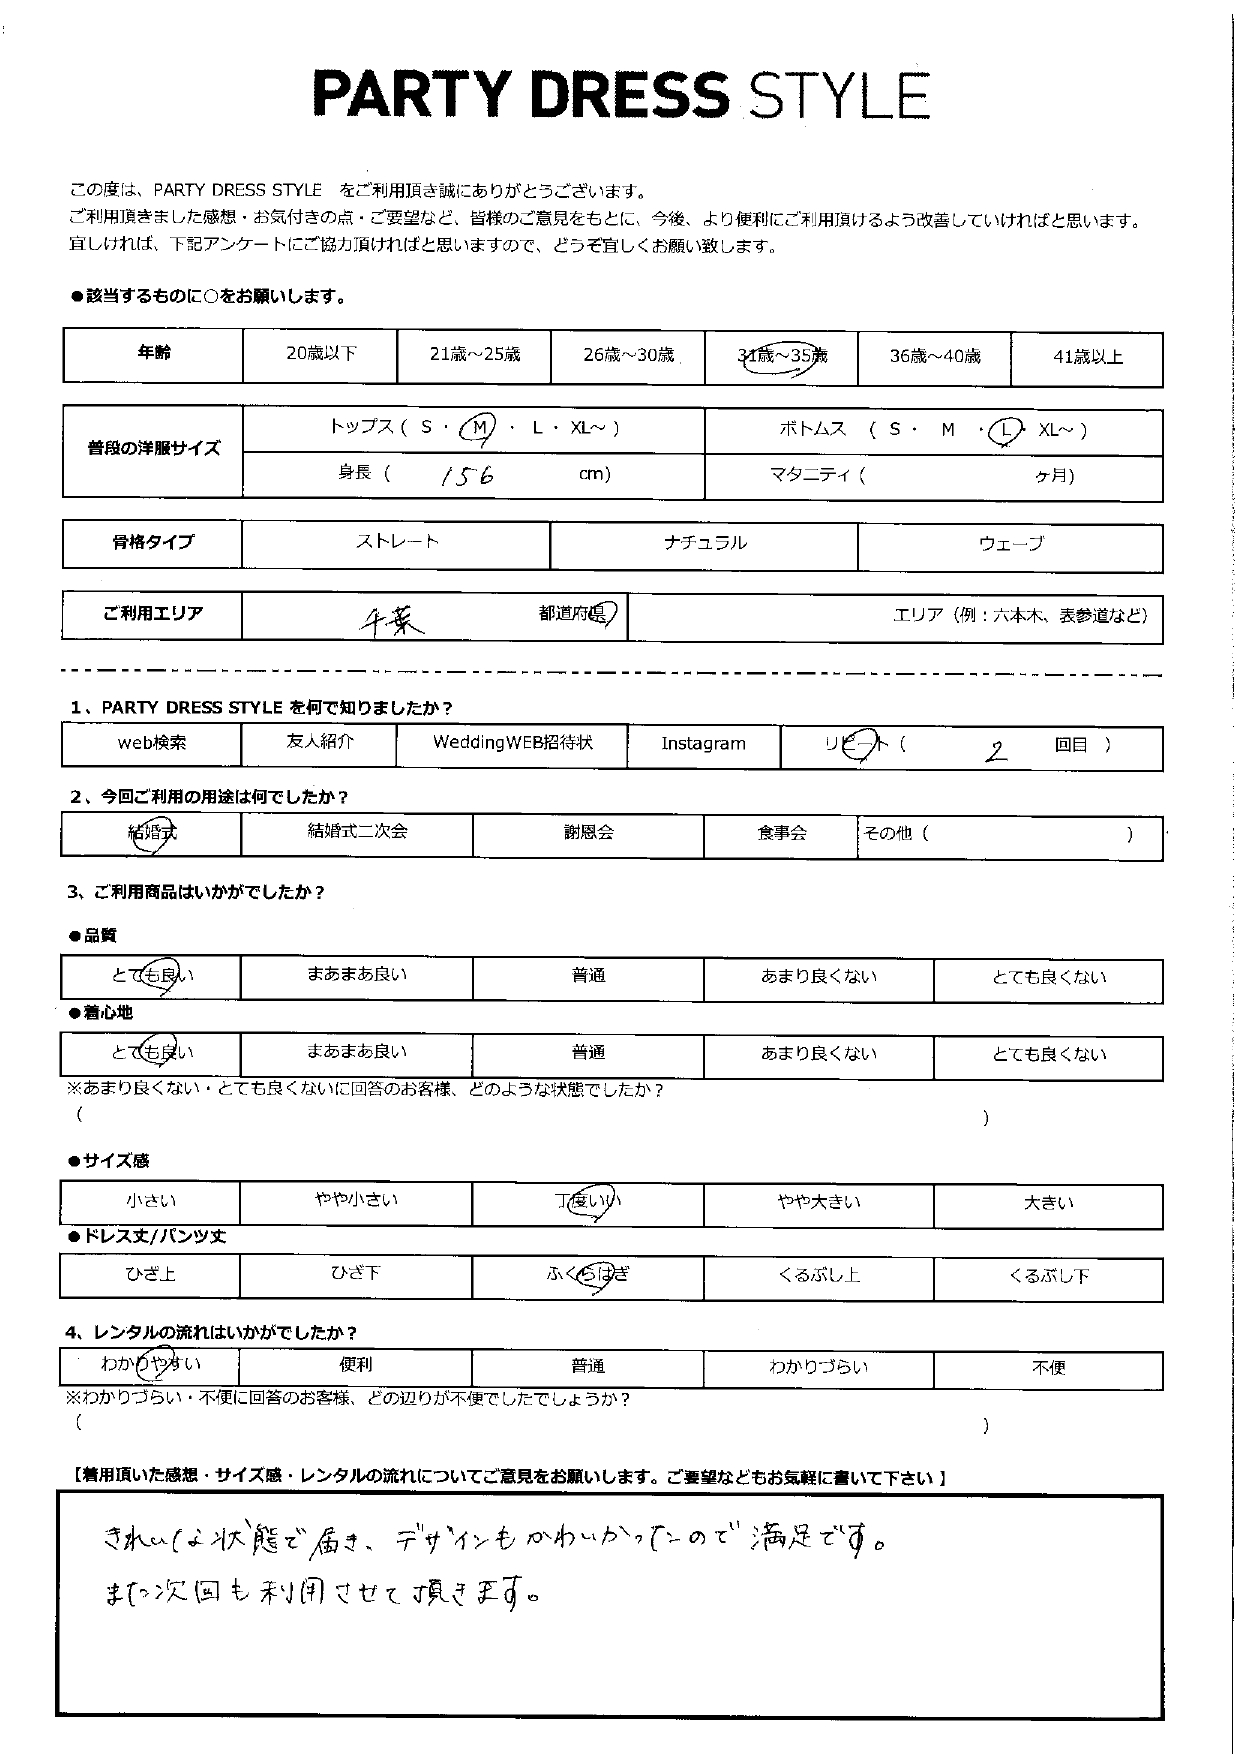 PARTY DRESS STYLE
この度は、PARTY DRESS STYLE　をご利用頂き誠にありがとうございます。
ご利用頂きました感想・お気付きの点・ご要望など、皆様のご意見をもとに、今後、より便利にご利用頂けるよう改善していければと思います。
宜しければ、下記アンケートにご協力頂ければと思いますので、どうぞ宜しくお願い致します。
●該当するものに○をお願いします。
年齢 20歳以下 21歳～25歳 26歳～30歳 31歳～35歳 36歳～40歳 41歳以上
普段の洋服サイズ トップス ( S ・ M ・ L ・ XL～ ) ボトムス ( S ・ M ・ L ・ XL～ )
身長 ( 156 cm) マタニティ ( ヶ月)
骨格タイプ ストレート ナチュラル ウェーブ
ご利用エリア 千葉 都道府県 エリア（例：六本木、表参道など）
1、PARTY DRESS STYLE を何で知りましたか？
web検索 友人紹介 WeddingWEB招待状 Instagram リピート ( 2 回目 )
2、今回ご利用の用途は何でしたか？
結婚式 結婚式二次会 謝恩会 食事会 その他 ( )
3、ご利用商品はいかがでしたか？
●品質
とても良い まあまあ良い 普通 あまり良くない とても良くない
●着心地
とても良い まあまあ良い 普通 あまり良くない とても良くない
※あまり良くない・とても良くないに回答のお客様、どのような状態でしたか？
( )
●サイズ感
小さい やや小さい 丁度いい やや大きい 大きい
●ドレス丈/パンツ丈
ひざ上 ひざ下 ふくらはぎ くるぶし上 くるぶし下
4、レンタルの流れはいかがでしたか？
わかりやすい 便利 普通 わかりづらい 不便
※わかりづらい・不便に回答のお客様、どの辺りが不便でしたでしょうか？
( )
【着用頂いた感想・サイズ感・レンタルの流れについてご意見をお願いします。ご要望などもお気軽に書いて下さい 】
きれいな状態で届き、デザインもかわいかったので満足です。
また次回も利用させて頂きます。